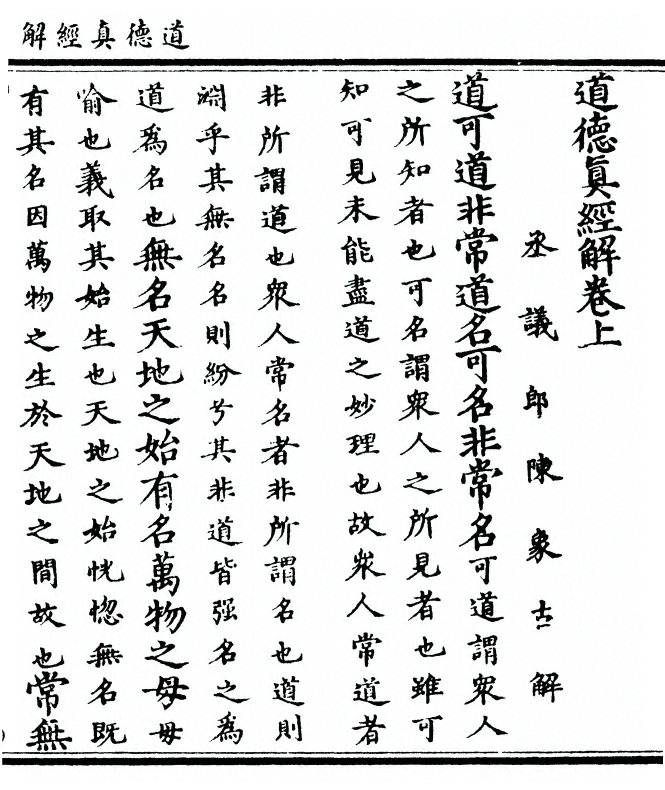 道德真經解
道德真經解卷上
丞議郎陳象古解
道可道非常道名可名非常名可道謂衆人
之所知者也可名謂衆人之所見者也雖可
知可見未能盡道之妙理也故衆人常道者
非所謂道也衆人常名者非所謂名也道則
淵乎其無名名則紛兮其非道皆强名之爲
道爲名也無名天地之始有名萬物之母母
喻也義取其始生也天地之始恍惚無名既
有其名因萬物之生於天地之間故也常無